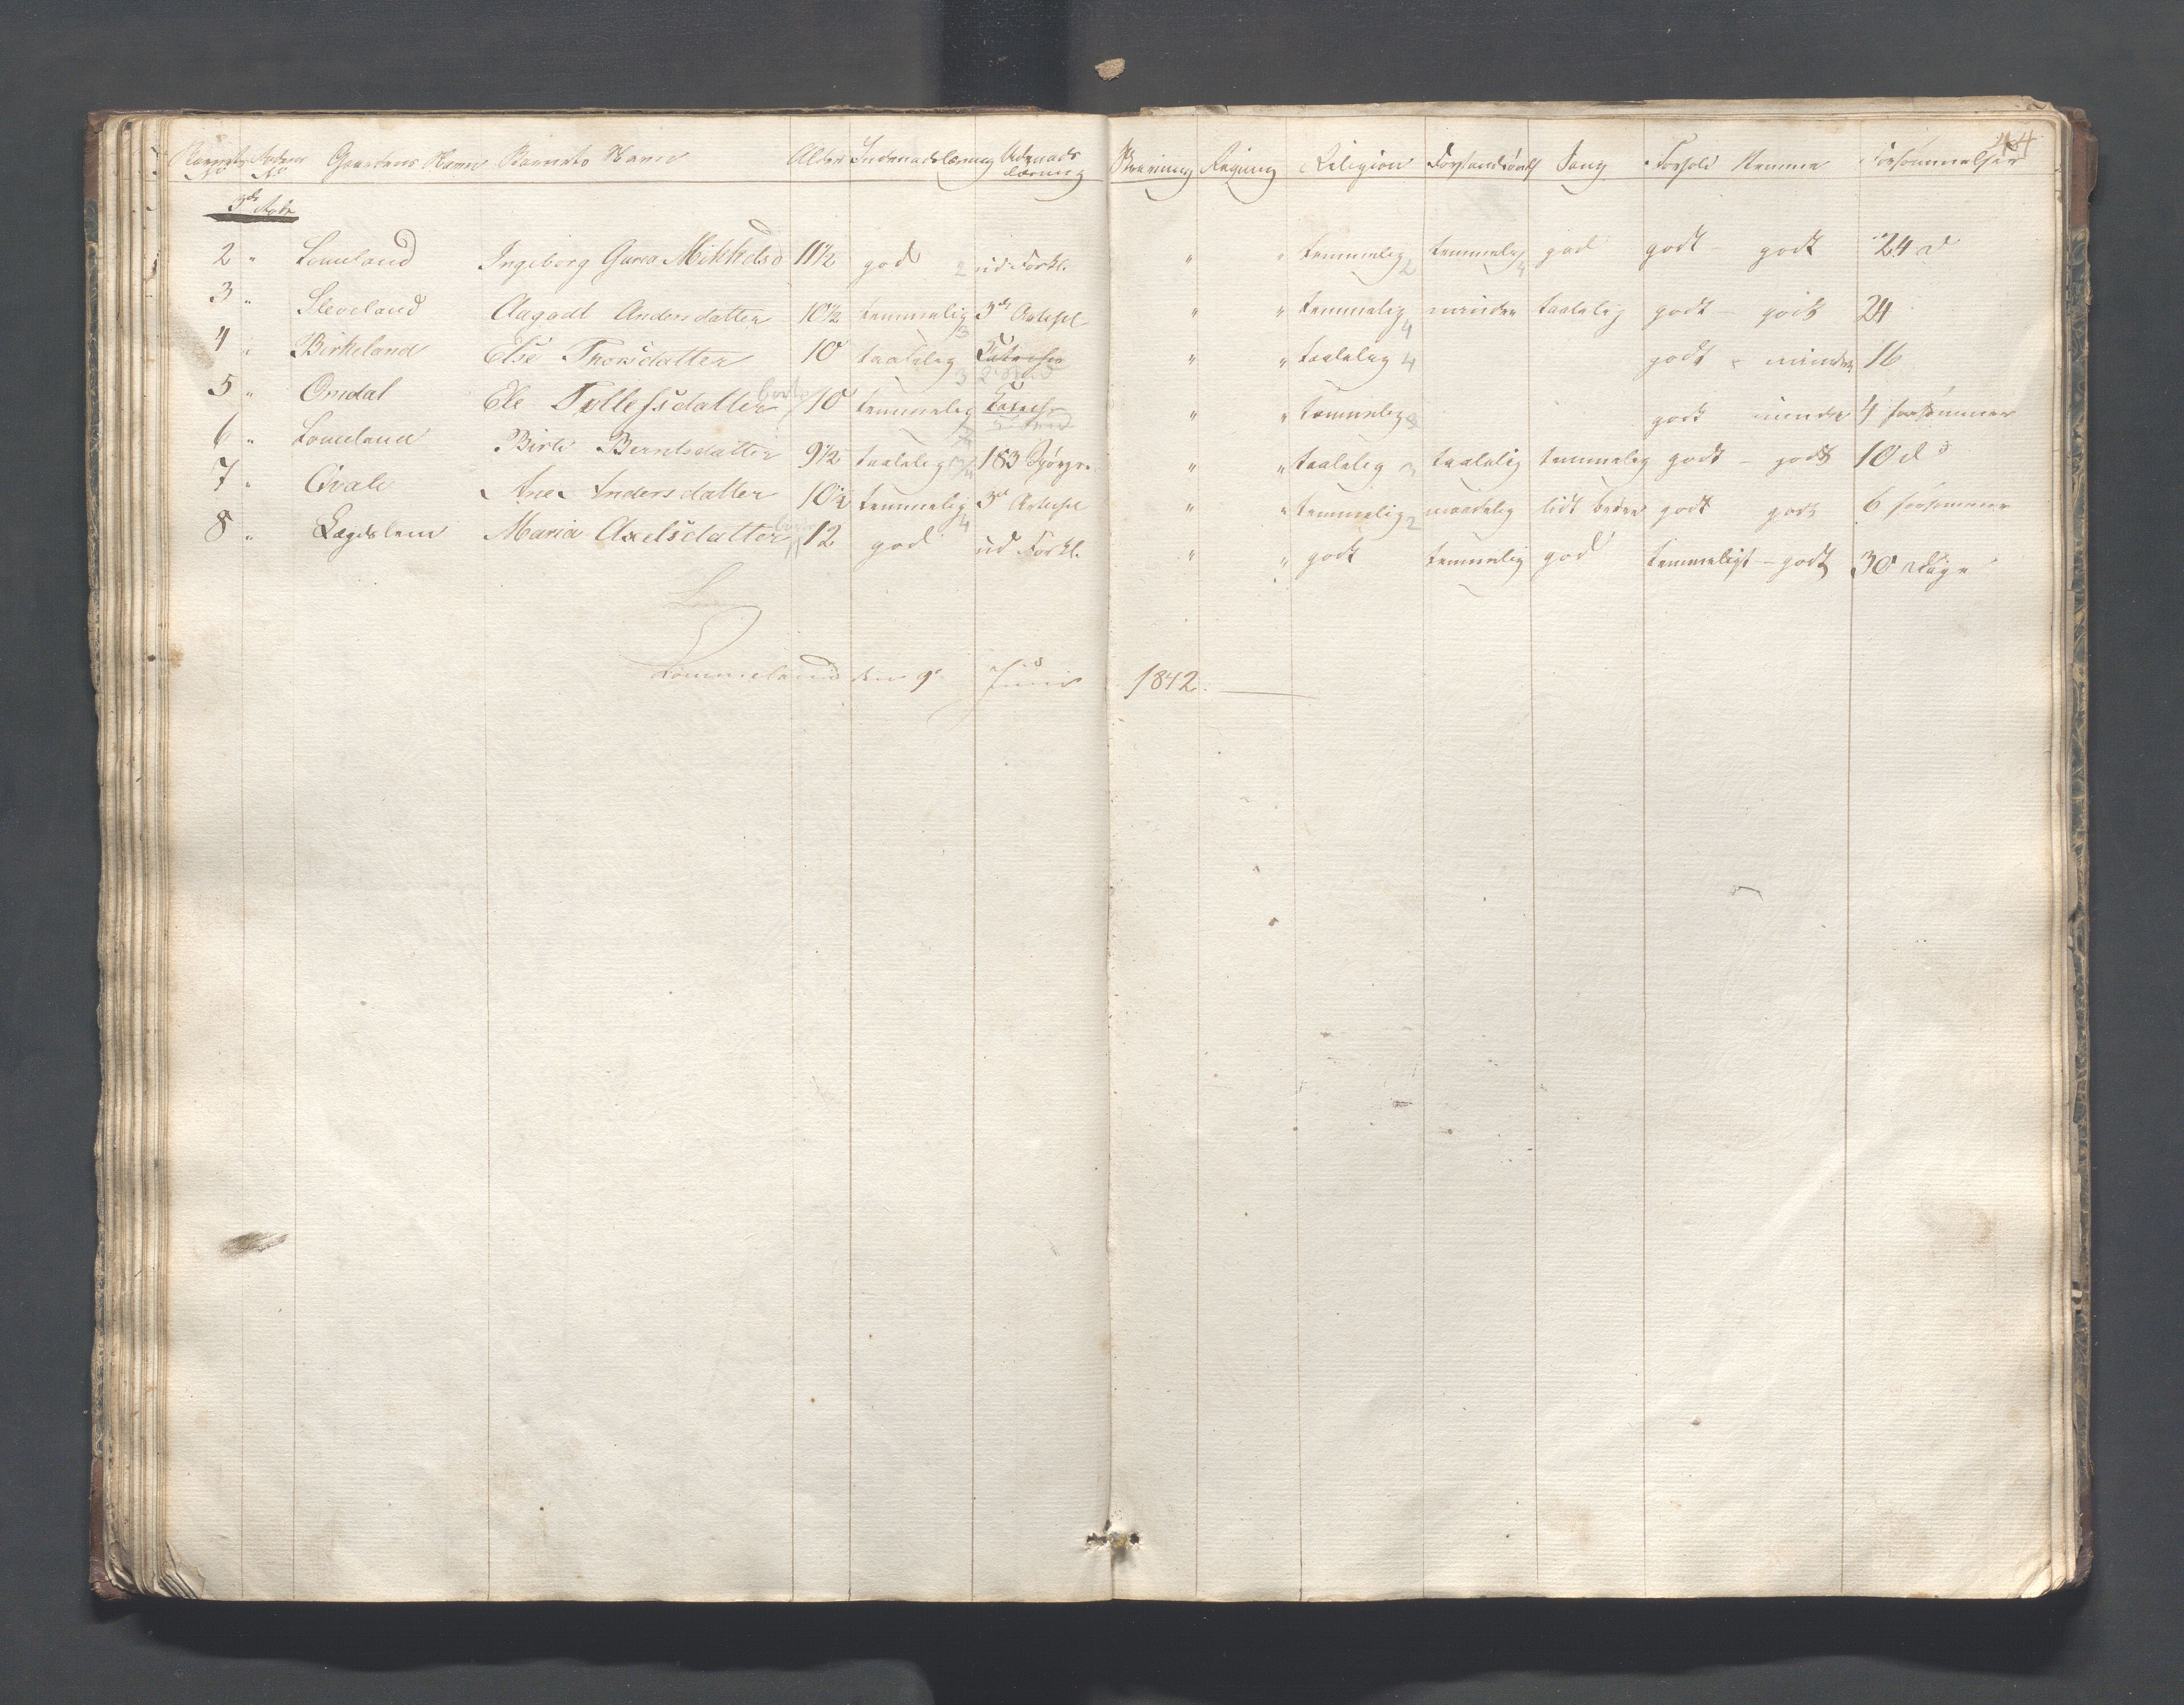 44
Barnets No Rodens No Gaardens Navn Barnets Navn Alder Indenadslæsning Udenadslæsning Skrivning Regning Religion Forstandsøvelse Sang Forhold Nemme Forsømmelser
3de
2 " Lomeland Ingeborg Gurea Mikkelsd 11½ god 2 ud Forkl. " " temmelig 2 temmelig 4 god godt - godt 24 d
3 " Sleveland Aagodt Andersdatter 10½ temmelig 3 3de Artikel " " temmelig 4 mindre taalelig godt - godt 24
4 " Birkeland Else Thorsdatter 10 taalelig 3 " " taalelig 4 godt - mindre 16
5 " Omdal Ele Tollefsdatter 10 temmelig " " temmelig 3 godt mindre 4 forsømmer
6 " Lomeland Birte Berntsdatter 9½ taalelig 183 Spørgs. " " taalelig 3 taalelig temmelig godt - godt 10 d
7 " Qvale Ane Andersdatter 10½ temmelig 4 3de Artikel " " temmelig 2 maadelig lidt bedre godt godt 6 forsømmer
8 " Lægdslem Maria Axelsdatter 12 god ud Forkl. " " godt temmelig god temmeligt - godt 30 Dage
Lommeland den 9de Juni 1842.